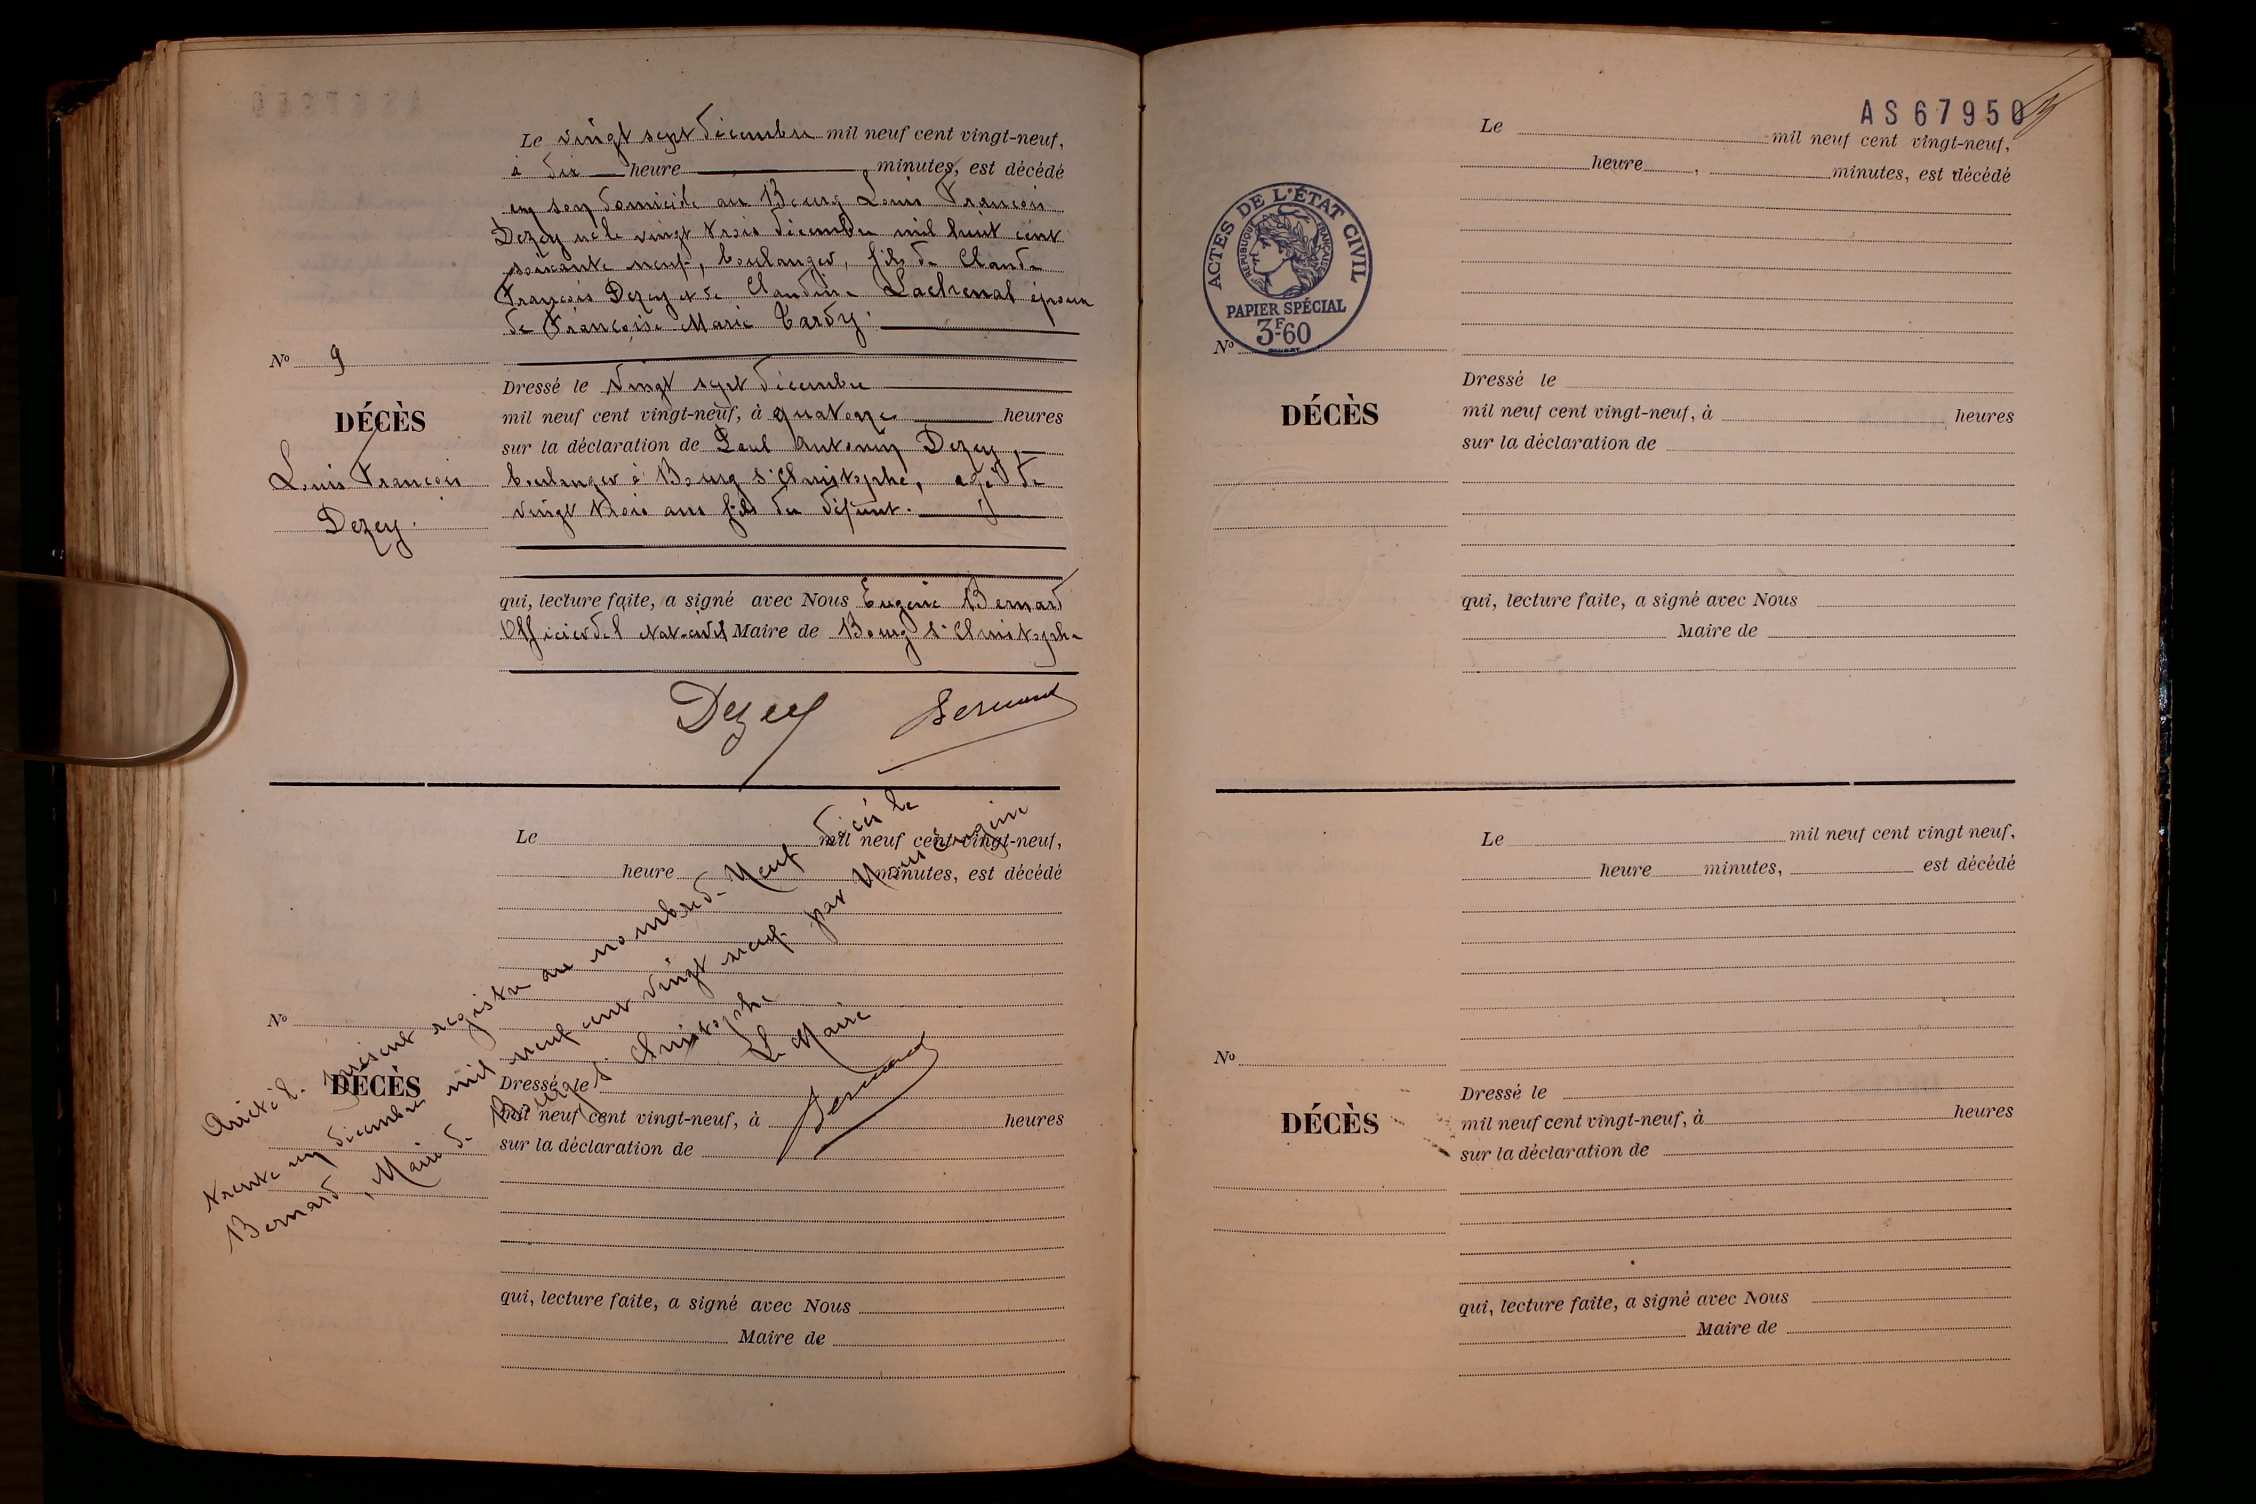 Le vingt sept décembre mil neuf cent vingt-neuf,
à dix heure minutes, est décédé
en son domicile au Bourg Louis François
Dezey né le vingt trois décembre mil huit cent
soixante neuf, boulanger, fils de Claude
François Dezey et de Claudine Lachenal époux
de Françoise Marie Tardy.
No 9
DÉCÈS
Louis François
Dezey.
Dressé le vingt sept décembre
mil neuf cent vingt-neuf, à quatorze heures
sur la déclaration de Paul Antonin Dezey,
boulanger à Bourg St Christophe, agé de
vingt trois ans fils du défunt.
qui, lecture faite, a signé avec Nous Eugène Bernard
Officier de l'état-civil Maire de Bourg St Christophe
Dezey Bernard
Le mil neuf cent vingt-neuf,
heure minutes, est décédé
No
DÉCÈS
Dressé le
mil neuf cent vingt-neuf, à heures
sur la déclaration de
qui, lecture faite, a signé avec Nous
Maire de
Arrêté le présent registre au nombre de Neuf décès le
trente un décembre mil neuf cent vingt neuf par Nous Eugène
Bernard, Maire de Bourg St Christophe
Le Maire
Bernard
AS67950
Le mil neuf cent vingt-neuf,
heure , minutes, est décédé
ACTES DE L'ÉTAT CIVIL
RÉPUBLIQUE FRANÇAISE
PAPIER SPÉCIAL
3F60
No
DÉCÈS
Dressé le
mil neuf cent vingt-neuf, à heures
sur la déclaration de
qui, lecture faite, a signé avec Nous
Maire de
Le mil neuf cent vingt neuf,
heure minutes, est décédé
No
DÉCÈS
Dressé le
mil neuf cent vingt-neuf, à heures
sur la déclaration de
qui, lecture faite, a signé avec Nous
Maire de